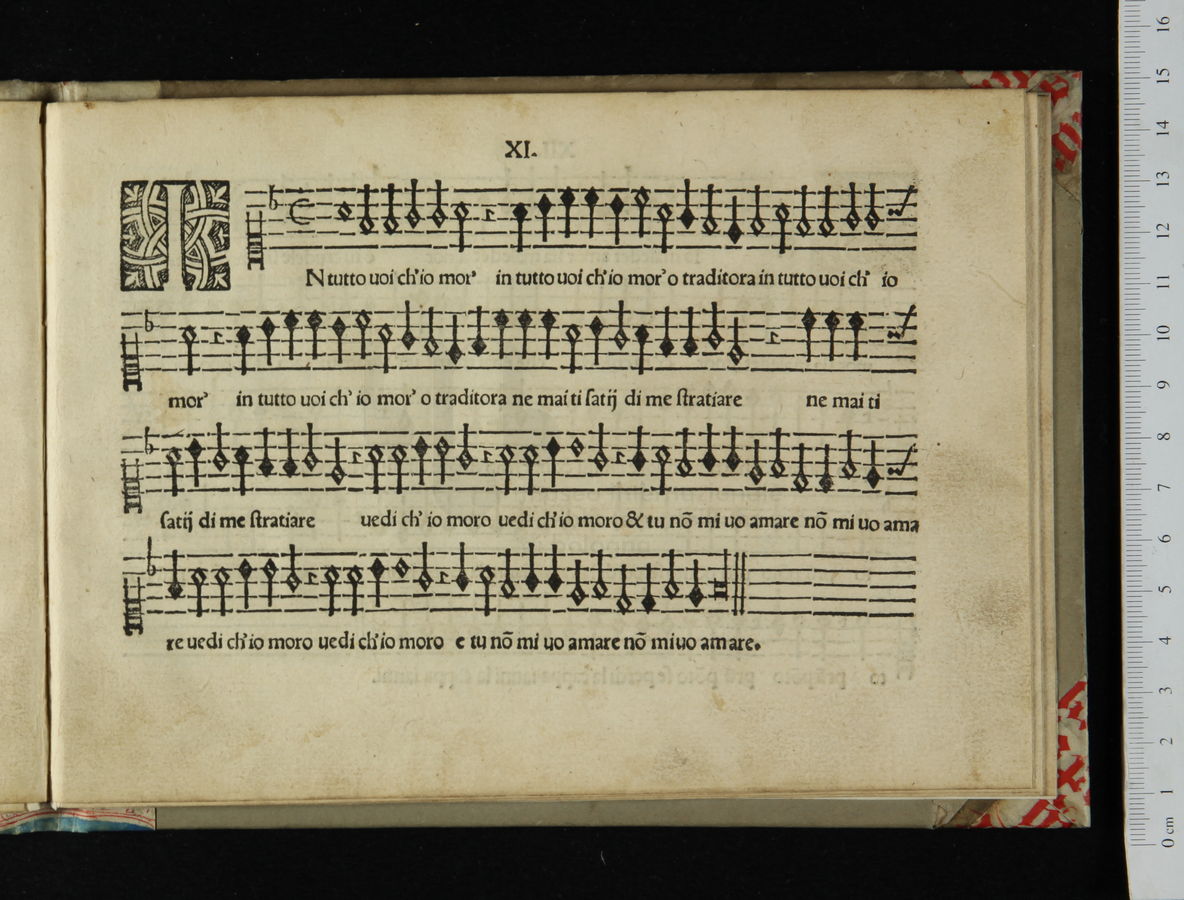 XI.
IN tutto uoi ch'io mor' in tutto uoi ch'io mor' o traditora in tutto uoi ch' io
mor' in tutto uoi ch' io mor' o traditora ne mai ti ſatij di me ſtratiare ne mai ti
ſatij di me ſtratiare uedi ch' io moro uedi ch'io moro & tu nō mi uo amare nō mi uo ama
re uedi ch'io moro uedi ch'io moro e tu nō mi uo amare nō mi uo amare.
0 cm 1 2 3 4 5 6 7 8 9 10 11 12 13 14 15 16